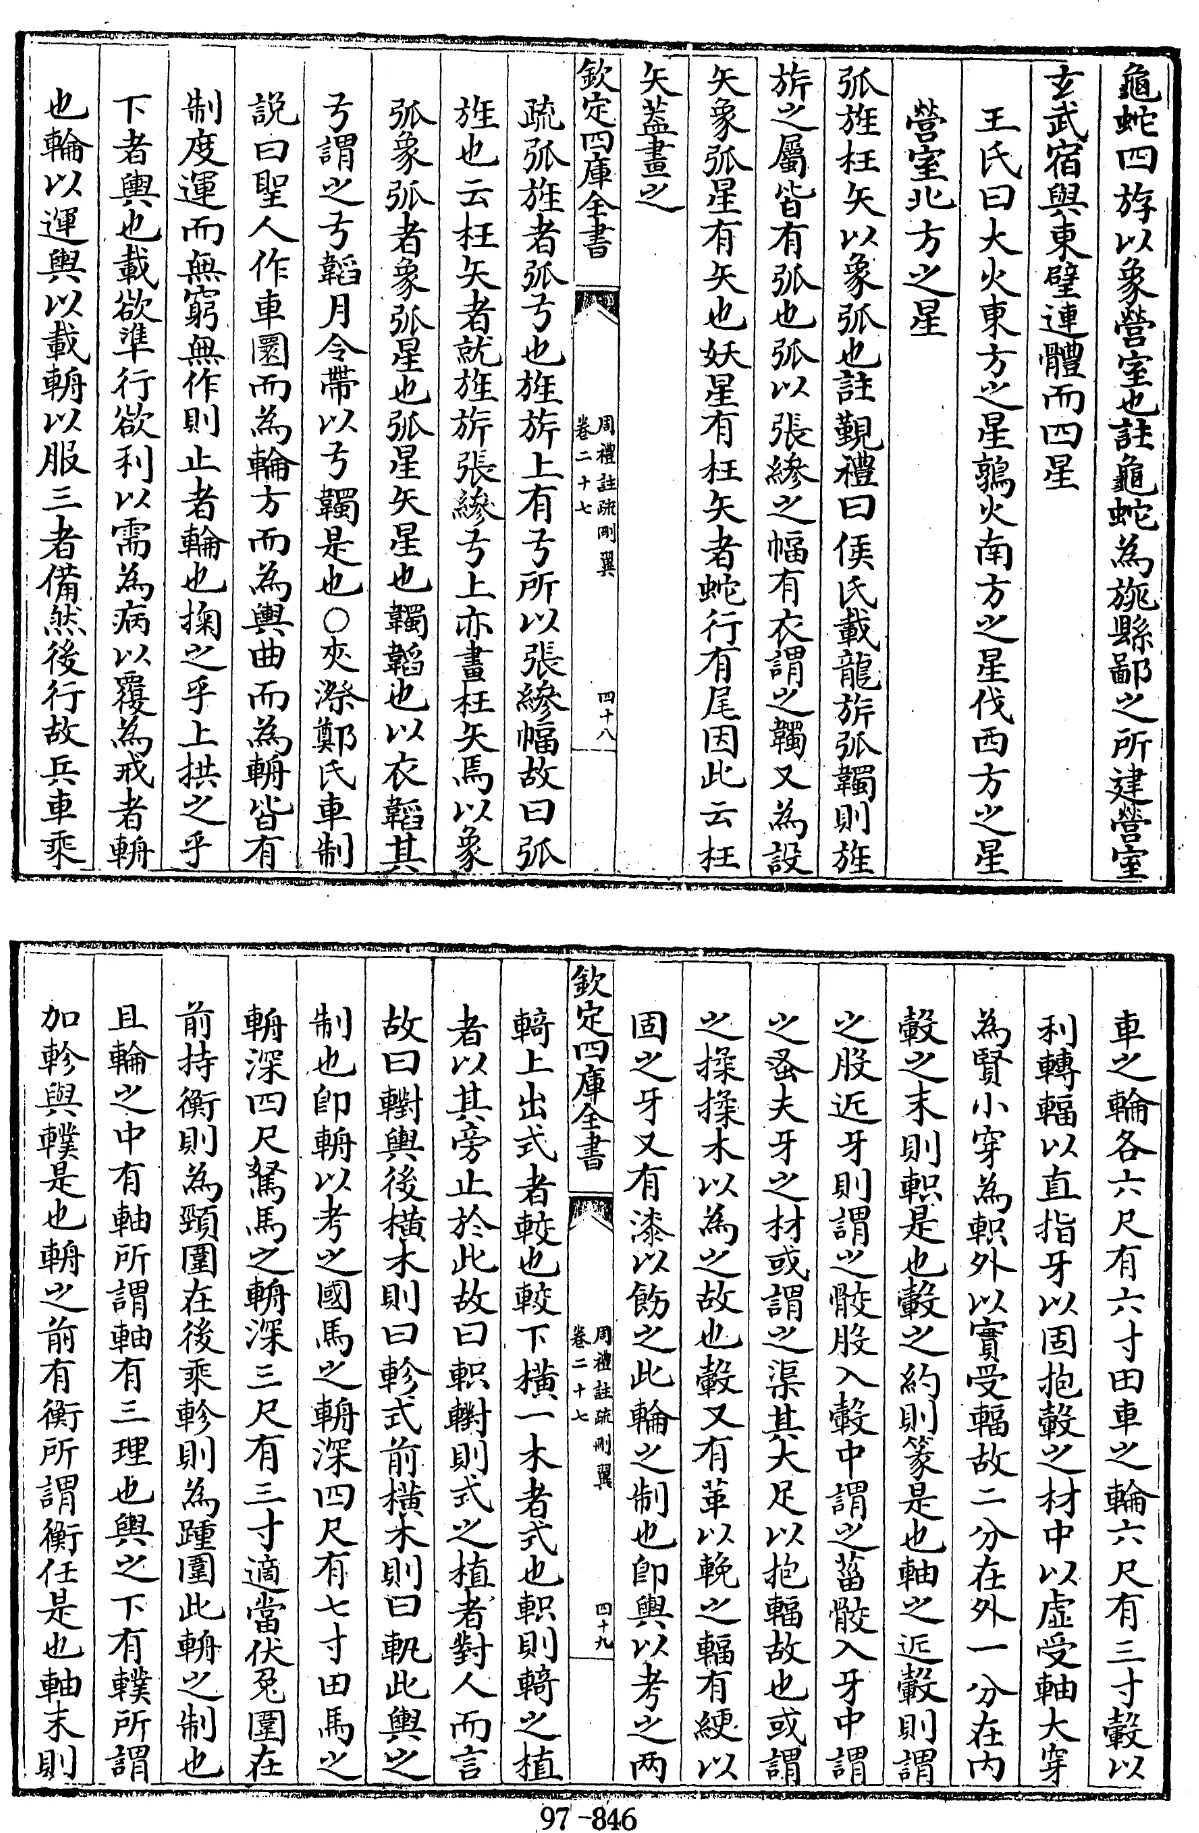 龜蛇四斿以象營室也註龜蛇為旐縣鄙之所建營室
玄武宿與東壁連體而四星
王氏曰大火東方之星鶉火南方之星伐西方之星
營室北方之星
弧旌枉矢以象弧也註覲禮曰侯氏載龍旂弧韣則旌
旂之屬皆有弧也弧以張縿之幅有衣謂之韣又為設
矢象弧星有矢也妖星有枉矢者蛇行有尾因此云枉
矢蓋畫之
欽定四庫全書
周禮註疏刪翼
卷二十七
四十八
疏弧旌者弧弓也旌旂上有弓所以張縿幅故曰弧
旌也云枉矢者就旌旂張縿弓上亦畫枉矢焉以象
弧象弧者象弧星也弧星矢星也韣韜也以衣韜其
弓謂之弓韜月令帶以弓韣是也○夾漈鄭氏車制
說曰聖人作車圜而為輪方而為輿曲而為輈皆有
制度運而無窮無作則止者輪也掬之乎上拱之乎
下者輿也載欲準行欲利以需為病以覆為戒者輈
也輪以運輿以載輈以服三者備然後行故兵車乘
車之輪各六尺有六寸田車之輪六尺有三寸轂以
利轉輻以直指牙以固抱轂之材中以虛受軸大穿
為賢小穿為軹外以實受輻故二分在外一分在内
轂之末則軹是也轂之約則篆是也軸之近轂則謂
之股近牙則謂之骹股入轂中謂之菑骹入牙中謂
之蚤夫牙之材或謂之渠其大足以抱輻故也或謂
之揉揉木以為之故也轂又有革以輓之輻有綆以
固之牙又有漆以飭之此輪之制也卽輿以考之兩
欽定四庫全書
周禮註疏刪翼
卷二十七
四十九
輢上出式者較也較下橫一木者式也軹則輢之植
者以其旁止於此故曰軹轛則式之植者對人而言
故曰轛輿後橫木則曰軫式前橫木則曰軓此輿之
制也卽輈以考之國馬之輈深四尺有七寸田馬之
輈深四尺駑馬之輈深三尺有三寸適當伏兔圍在
前持衡則為頸圍在後乘軫則為踵圍此輈之制也
且輪之中有軸所謂軸有三理也輿之下有轐所謂
加軫與轐是也輈之前有衡所謂衡任是也軸末則
97-846